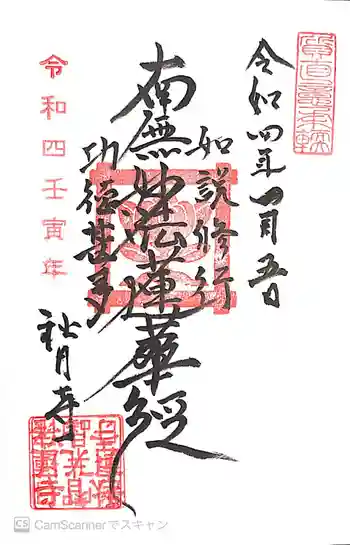 令和四年四月五日
如説修行
南無妙法蓮華経
功徳甚多
令和四壬寅年
秋月寺
CS CamScannerでスキャン